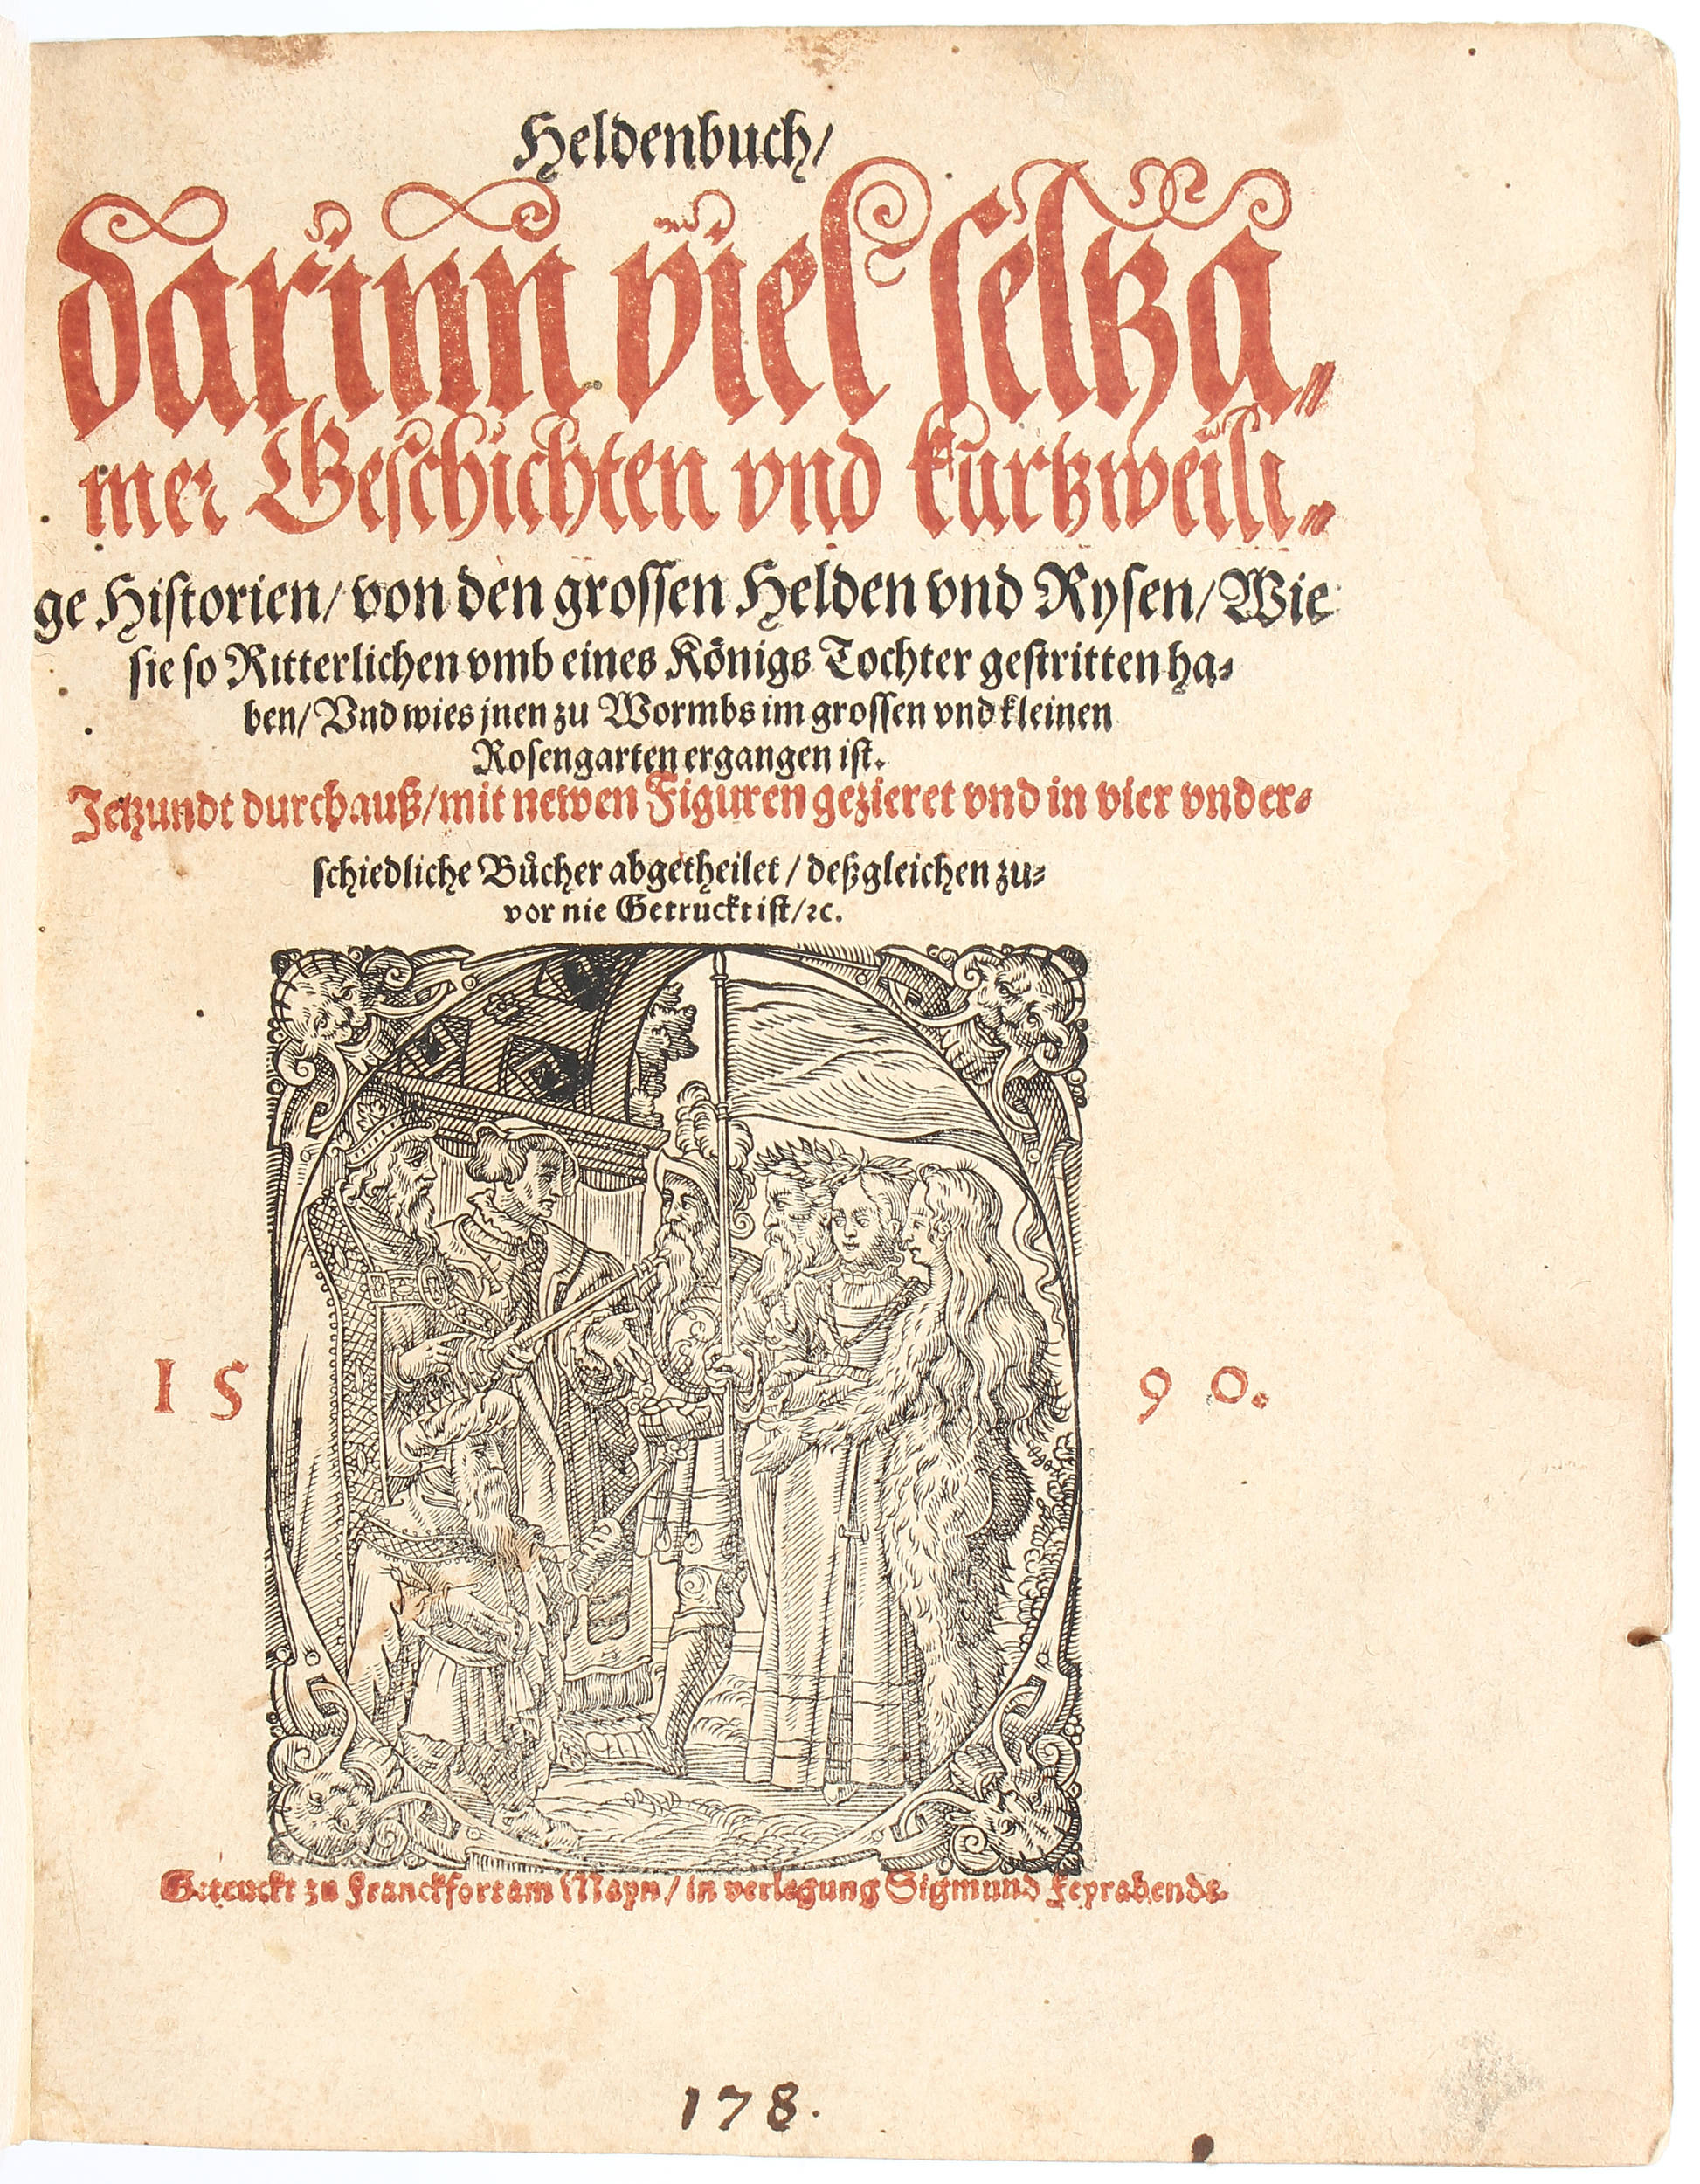 Heldenbuch/
darinn viel seltza⸗
mer Geschichten vnd kurtzweili⸗
ge Historien/ von den grossen Helden vnd Rysen/ Wie
sie so Ritterlichen vmb eines Königs Tochter gestritten ha⸗
ben/ Vnd wies jnen zu Wormbs im grossen vnd kleinen
Rosengarten ergangen ist.
Jetzundt durchauß/ mit newen Figuren gezieret vnd in vier vnder⸗
schiedliche Bůcher abgetheilet/ deßgleichen zu⸗
vor nie Getruckt ist/ ꝛc.
15 90.
Getruckt zu Franckfort am Mayn/ in verlegung Sigmund Feyrabends.
178.